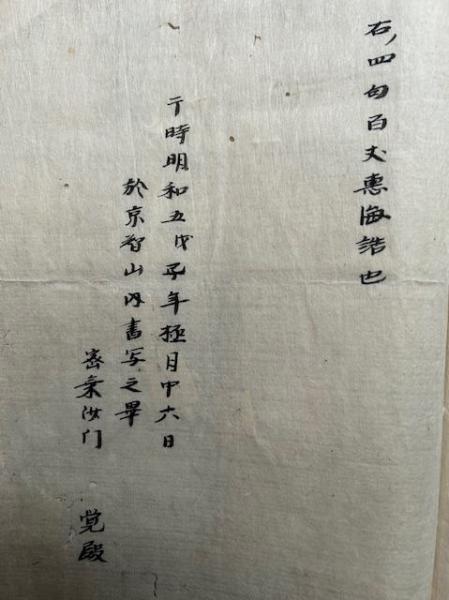 右四句百丈惠海語也
于時明和五戊子年極月中六日
於京智山内書写之畢
密乗沙门 覚殿